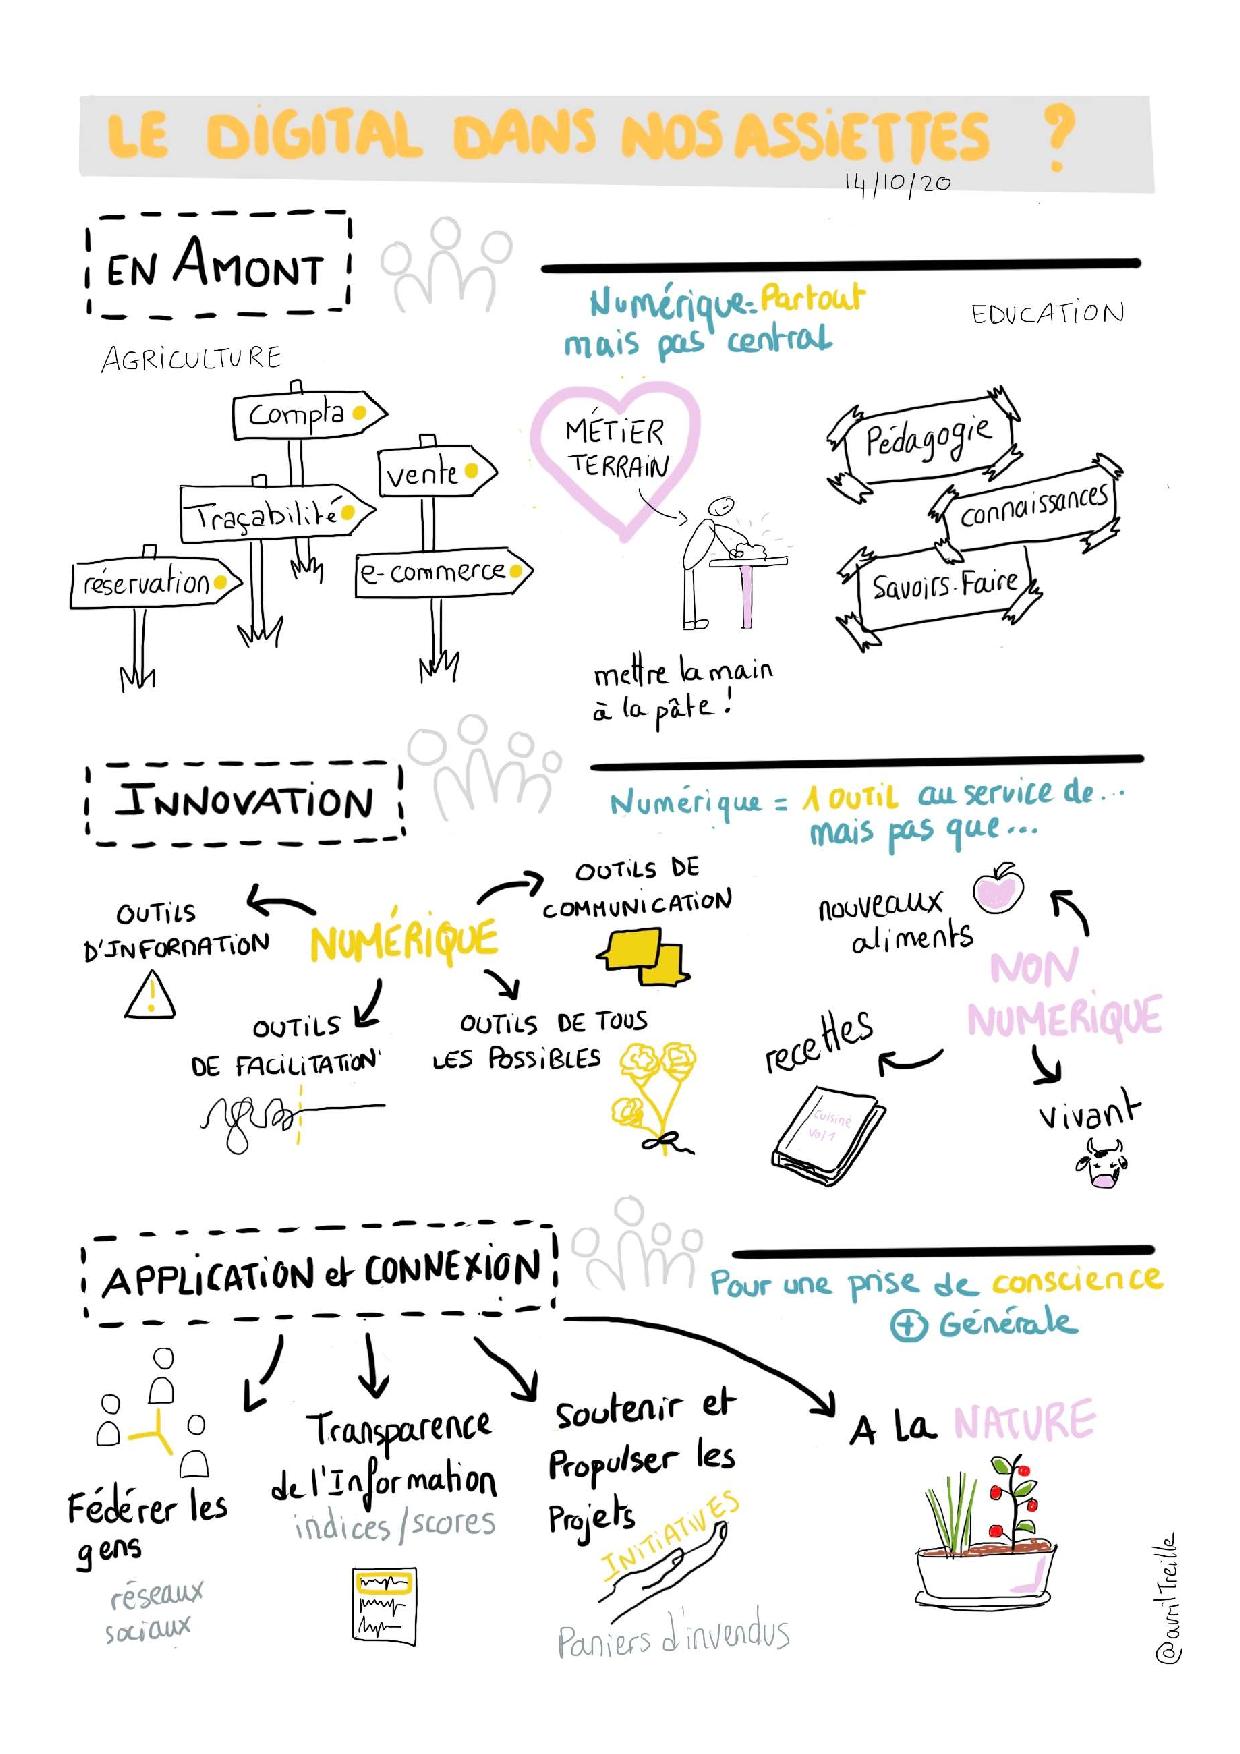 LE DIGITAL DANS NOS ASSIETTES ?
14/10/20
EN AMONT
Numérique = Partout
mais pas central
EDUCATION
AGRICULTURE
Compta
vente
Traçabilité
réservation
e-commerce
MÉTIER
TERRAIN
mettre la main
à la pâte !
Pédagogie
connaissances
Savoirs-Faire
INNOVATION
Numérique = 1 OUTIL au service de...
mais pas que...
OUTILS
D'INFORMATION
NUMÉRIQUE
OUTILS DE
COMMUNICATION
OUTILS
DE FACILITATION
OUTILS DE TOUS
LES POSSIBLES
nouveaux
aliments
NON
NUMERIQUE
recettes
Cuisine
Vol 1
vivant
APPLICATION et CONNEXION
Pour une prise de conscience
+ Générale
Fédérer les
gens
réseaux
sociaux
Transparence
de l'Information
indices/scores
Soutenir et
Propulser les
Projets
INITIATIVES
Paniers d'invendus
A La NATURE
@avrilTreille